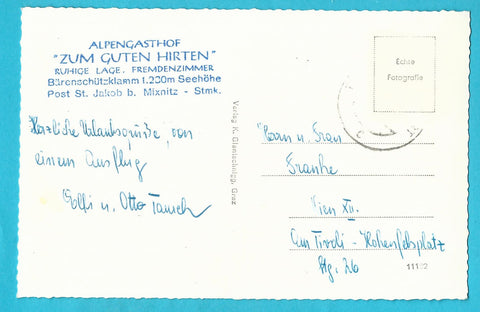 ALPENGASTHOF
"ZUM GUTEN HIRTEN"
RUHIGE LAGE, FREMDENZIMMER
Bärenschützklamm 1.230m Seehöhe
Post St. Jakob b. Mixnitz - Stmk.
Herzliche Urlaubsgrüße von
einem Ausflug
u. Otto
Verlag K. Graz
Echte
Fotografie
Herrn u. Frau
Franke
Wien XII.
Am Tivoli - Hohenfelsplatz
Stg. 26